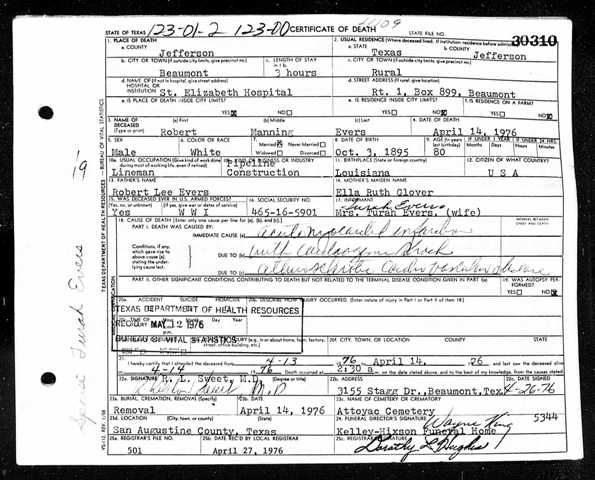 16109
STATE OF TEXAS 123-01-2 123-00 CERTIFICATE OF DEATH STATE FILE NO. 30310
1. PLACE OF DEATH 2. USUAL RESIDENCE (Where deceased lived. If institution: residence before admission)
a. COUNTY a. STATE b. COUNTY
Jefferson Texas Jefferson
b. CITY OR TOWN (If outside city limits, give precinct no.) c. LENGTH OF STAY c. CITY OR TOWN (If outside city limits, give precinct no.)
Beaumont 3 hours Rural
d. NAME OF (If not in hospital, give street address) d. STREET ADDRESS (If rural, give location)
HOSPITAL OR INSTITUTION St. Elizabeth Hospital Rt. 1, Box 899, Beaumont
e. IS PLACE OF DEATH INSIDE CITY LIMITS? e. IS RESIDENCE INSIDE CITY LIMITS? f. IS RESIDENCE ON A FARM?
YES NO YES NO YES NO
3. NAME OF DECEASED (a) First (b) Middle (c) Last 4. DATE OF DEATH
(Type or print) Robert Manning Evers April 14, 1976
5. SEX 6. COLOR OR RACE 7. Married Never Married 8. DATE OF BIRTH 9. AGE (In years last birthday) IF UNDER 1 YEAR IF UNDER 24 HRS.
Male White Widowed Divorced Oct. 3, 1895 80
10a. USUAL OCCUPATION (Give kind of work done during most of working life, even if retired) 10b. KIND OF BUSINESS OR INDUSTRY 11. BIRTHPLACE (State or foreign country) 12. CITIZEN OF WHAT COUNTRY?
Lineman Pipeline Construction Louisiana U S A
13. FATHER'S NAME 14. MOTHER'S MAIDEN NAME
Robert Lee Evers Ella Ruth Glover
15. WAS DECEASED EVER IN U.S. ARMED FORCES? 16. SOCIAL SECURITY NO. 17. INFORMANT
(Yes, no, or unknown) (If yes, give war or dates of service) Turah Evers
Yes W W I 465-16-5901 Mrs. Turah Evers, (wife)
18. CAUSE OF DEATH (Enter only one cause per line for (a), (b), and (c).) INTERVAL BETWEEN ONSET AND DEATH
PART I. DEATH WAS CAUSED BY:
IMMEDIATE CAUSE (a) acute myocardial infarction
DUE TO (b) with cardiogenic shock
DUE TO (c) atherosclerotic cardiovascular disease
PART II. OTHER SIGNIFICANT CONDITIONS CONTRIBUTING TO DEATH BUT NOT RELATED TO THE TERMINAL DISEASE CONDITION GIVEN IN PART I(a) 19. WAS AUTOPSY PERFORMED?
YES NO
20a. ACCIDENT SUICIDE HOMICIDE 20b. DESCRIBE HOW INJURY OCCURRED. (Enter nature of injury in Part I or Part II of item 18)
TEXAS DEPARTMENT OF HEALTH RESOURCES
REC'D MAY 12 1976
BUREAU OF VITAL STATISTICS
20f. CITY, TOWN, OR LOCATION COUNTY STATE
21. I hereby certify that I attended the deceased from 4-13 76 April 14, 76 and last saw the deceased alive
4-14 76 Death occurred at 2:30 a. m. on the date stated above, and to the best of my knowledge, from the causes stated.
22a. SIGNATURE (Degree or title) 22b. ADDRESS 22c. DATE SIGNED
R. L. Sweet, M.D. 3155 Stagg Dr., Beaumont, Tex 4-26-76
23a. BURIAL, CREMATION, REMOVAL (Specify) 23b. DATE 23c. NAME OF CEMETERY OR CREMATORY
Removal April 14, 1976 Attoyac Cemetery
23d. LOCATION (City, town, or county) (State) 24. FUNERAL DIRECTOR'S SIGNATURE Wayne King 5344
San Augustine County, Texas Kelley-Hixson Funeral Home
25a. REGISTRAR'S FILE NO. 25b. DATE REC'D BY LOCAL REGISTRAR 25c. REGISTRAR'S SIGNATURE
501 April 27, 1976 Dorothy L Hughes
TEXAS DEPARTMENT OF HEALTH RESOURCES BUREAU OF VITAL STATISTICS
19
Turah Evers